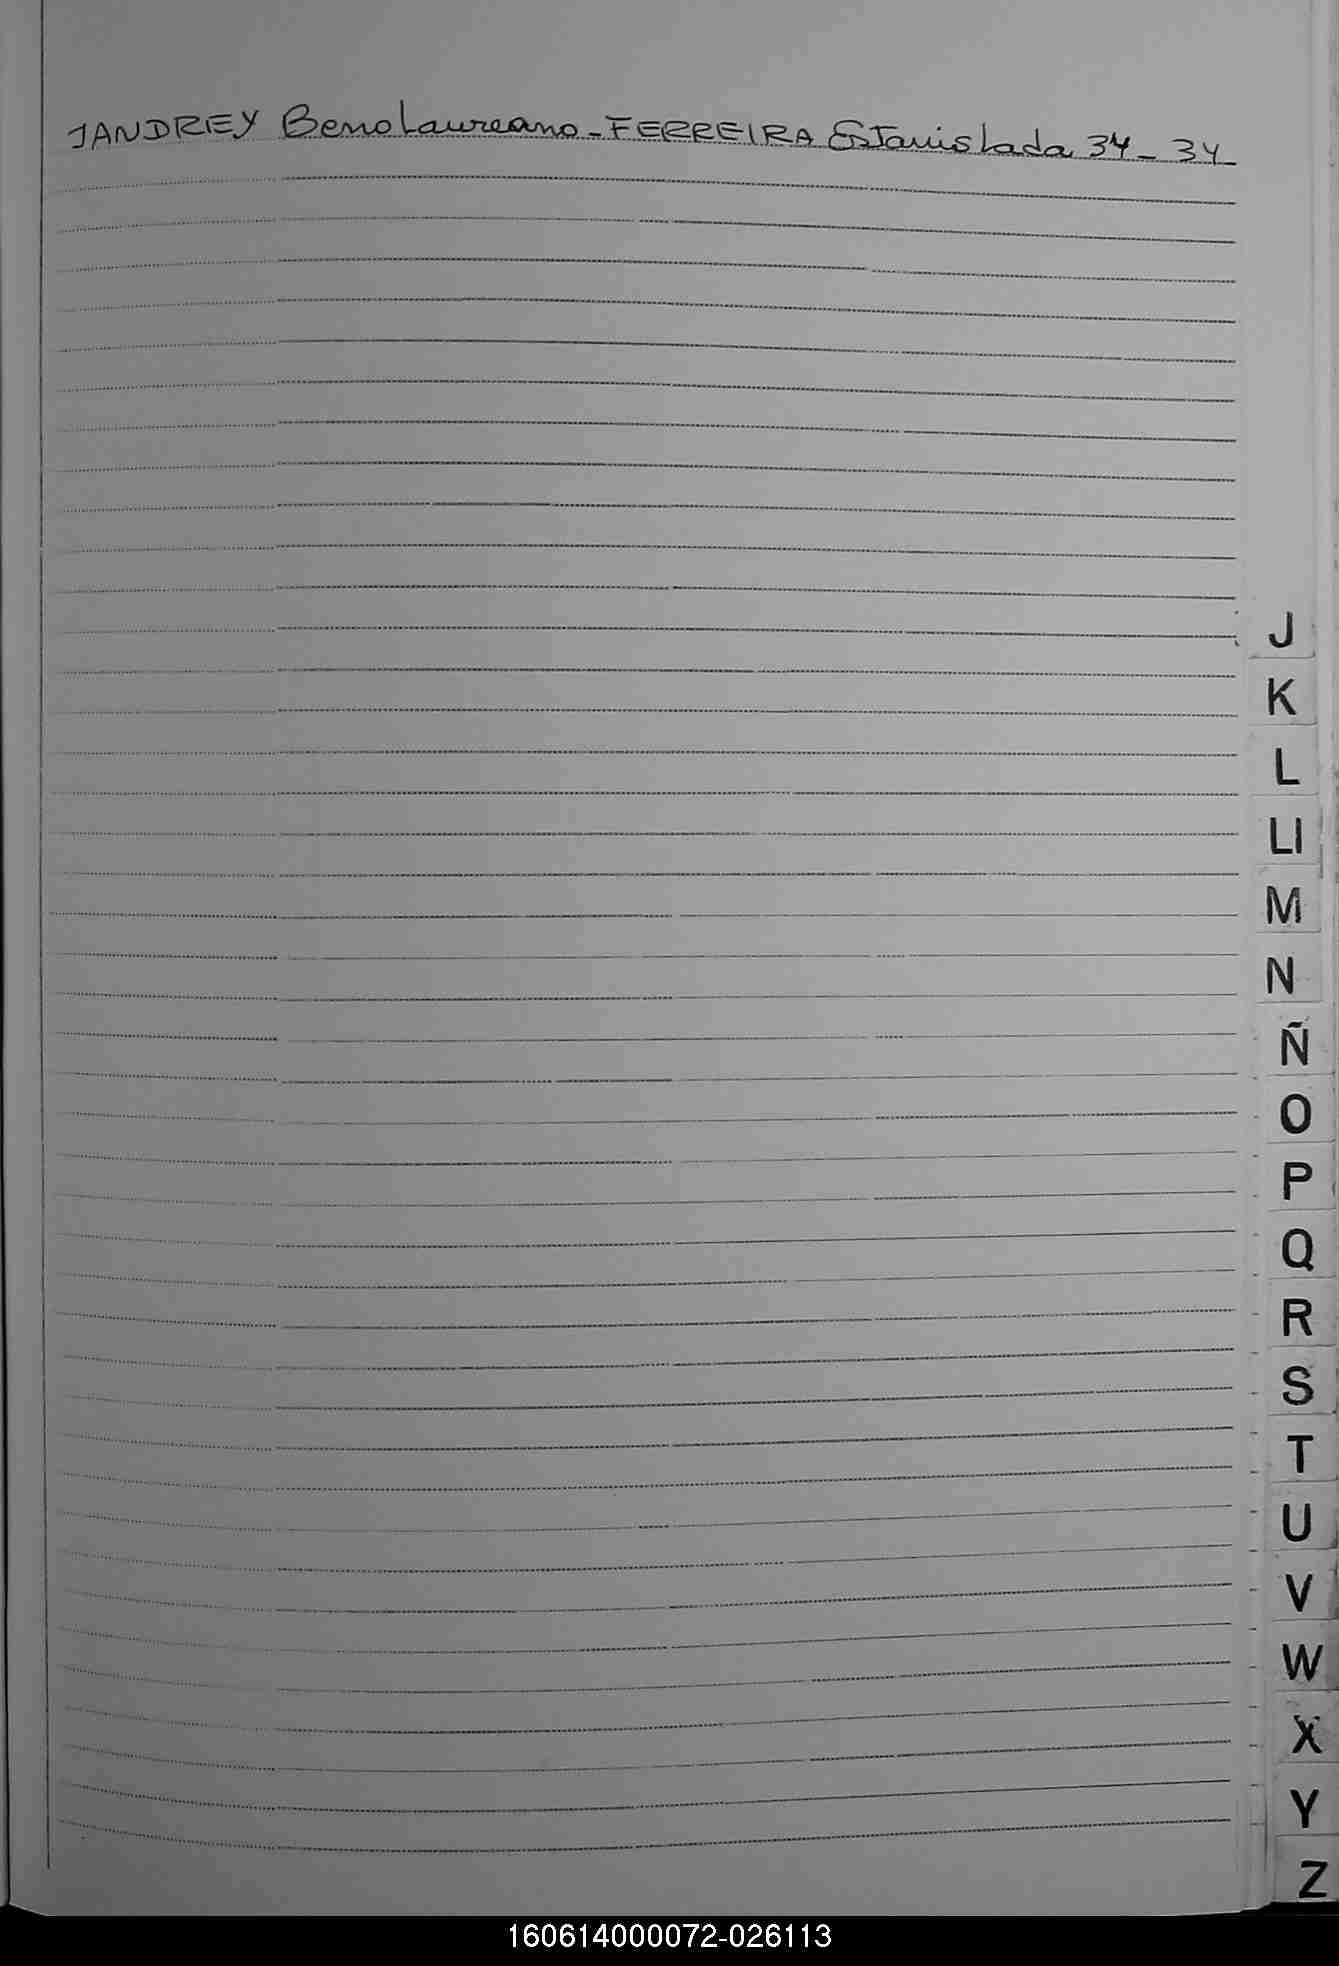 JANDREY Beno Laureano - FERREIRA Estanislada 34 - 34 -
J
K
L
Ll
M
N
Ñ
O
P
Q
R
S
T
U
V
W
X
Y
Z
160614000072-026113